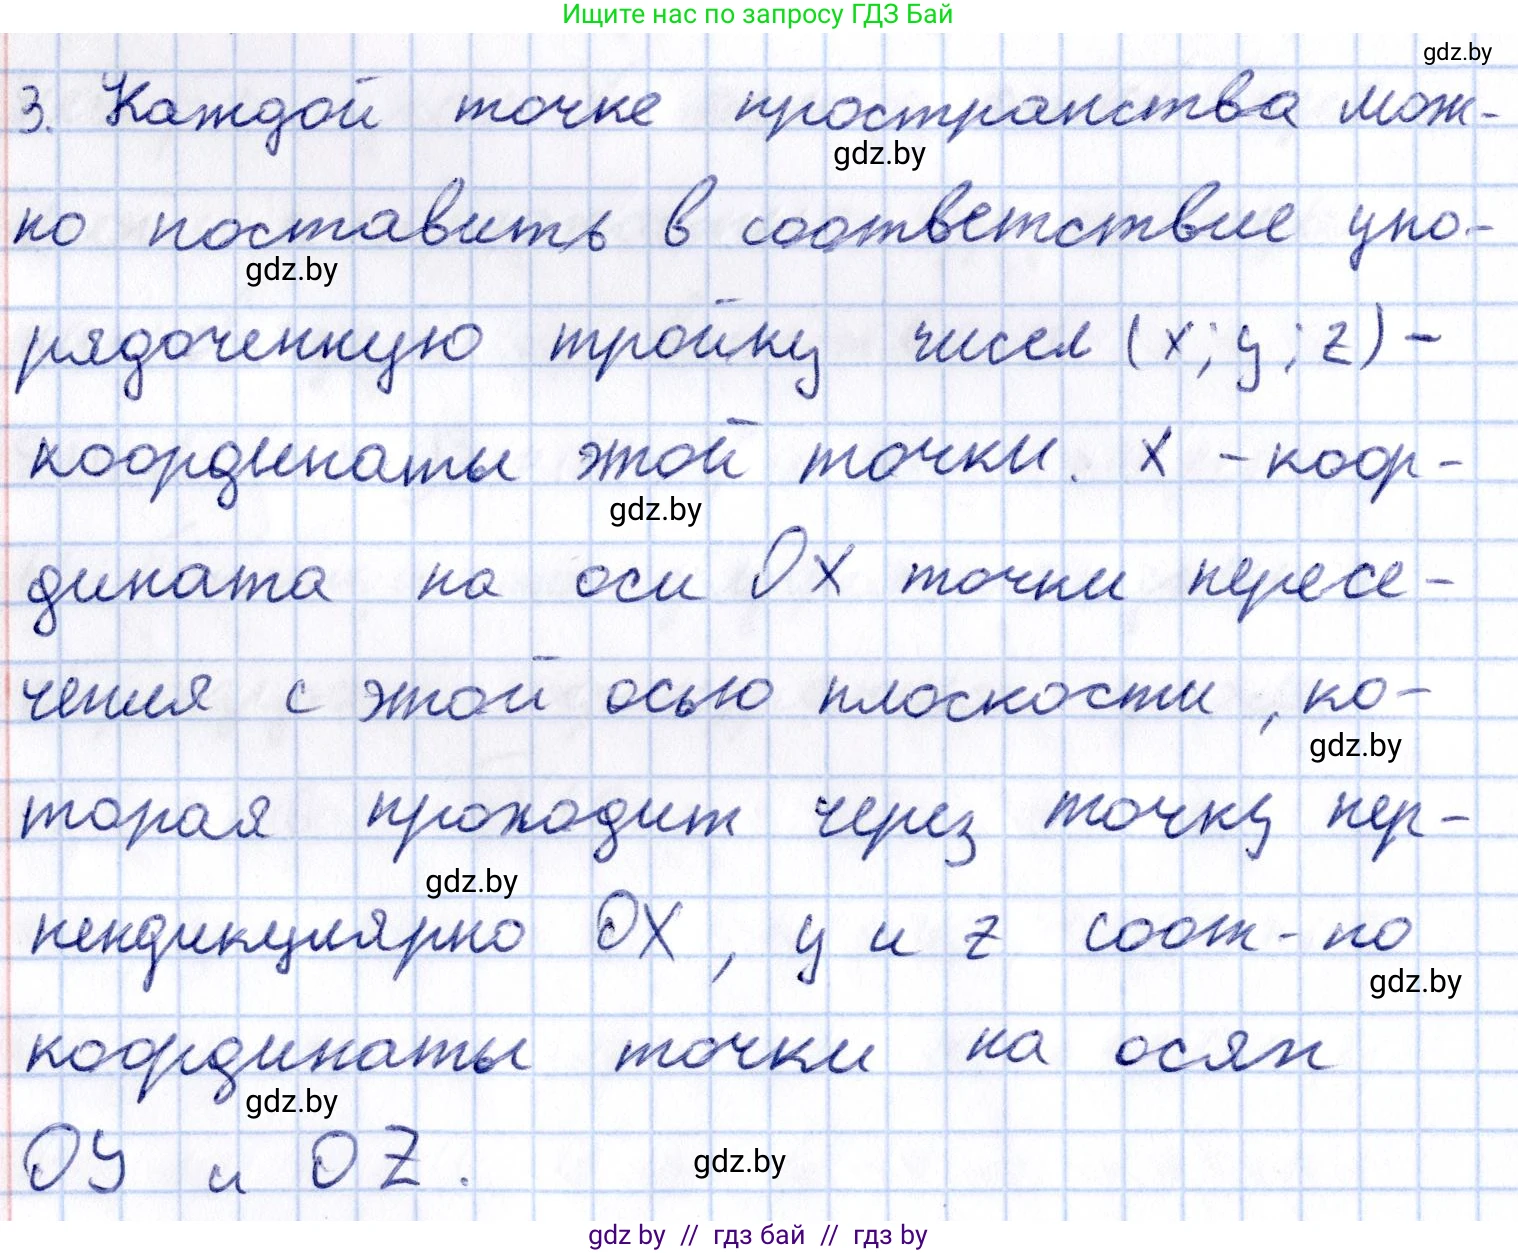 Ищите нас по запросу ГДЗ Бай
gdz.by
3. Каждой точке пространства мож-
gdz.by
но поставить в соответствие упо-
gdz.by
рядоченную тройку чисел (x; y; z) -
координаты этой точки. X - коор-
gdz.by
дината на оси OX точки пересе-
чения с этой осью плоскости, ко-
gdz.by
торая проходит через точку пер-
gdz.by
пендикулярно OX, y и z соотв-но
gdz.by
координаты точки на осях
gdz.by
OY и OZ.
gdz.by
gdz by // гдз бай // гдз by